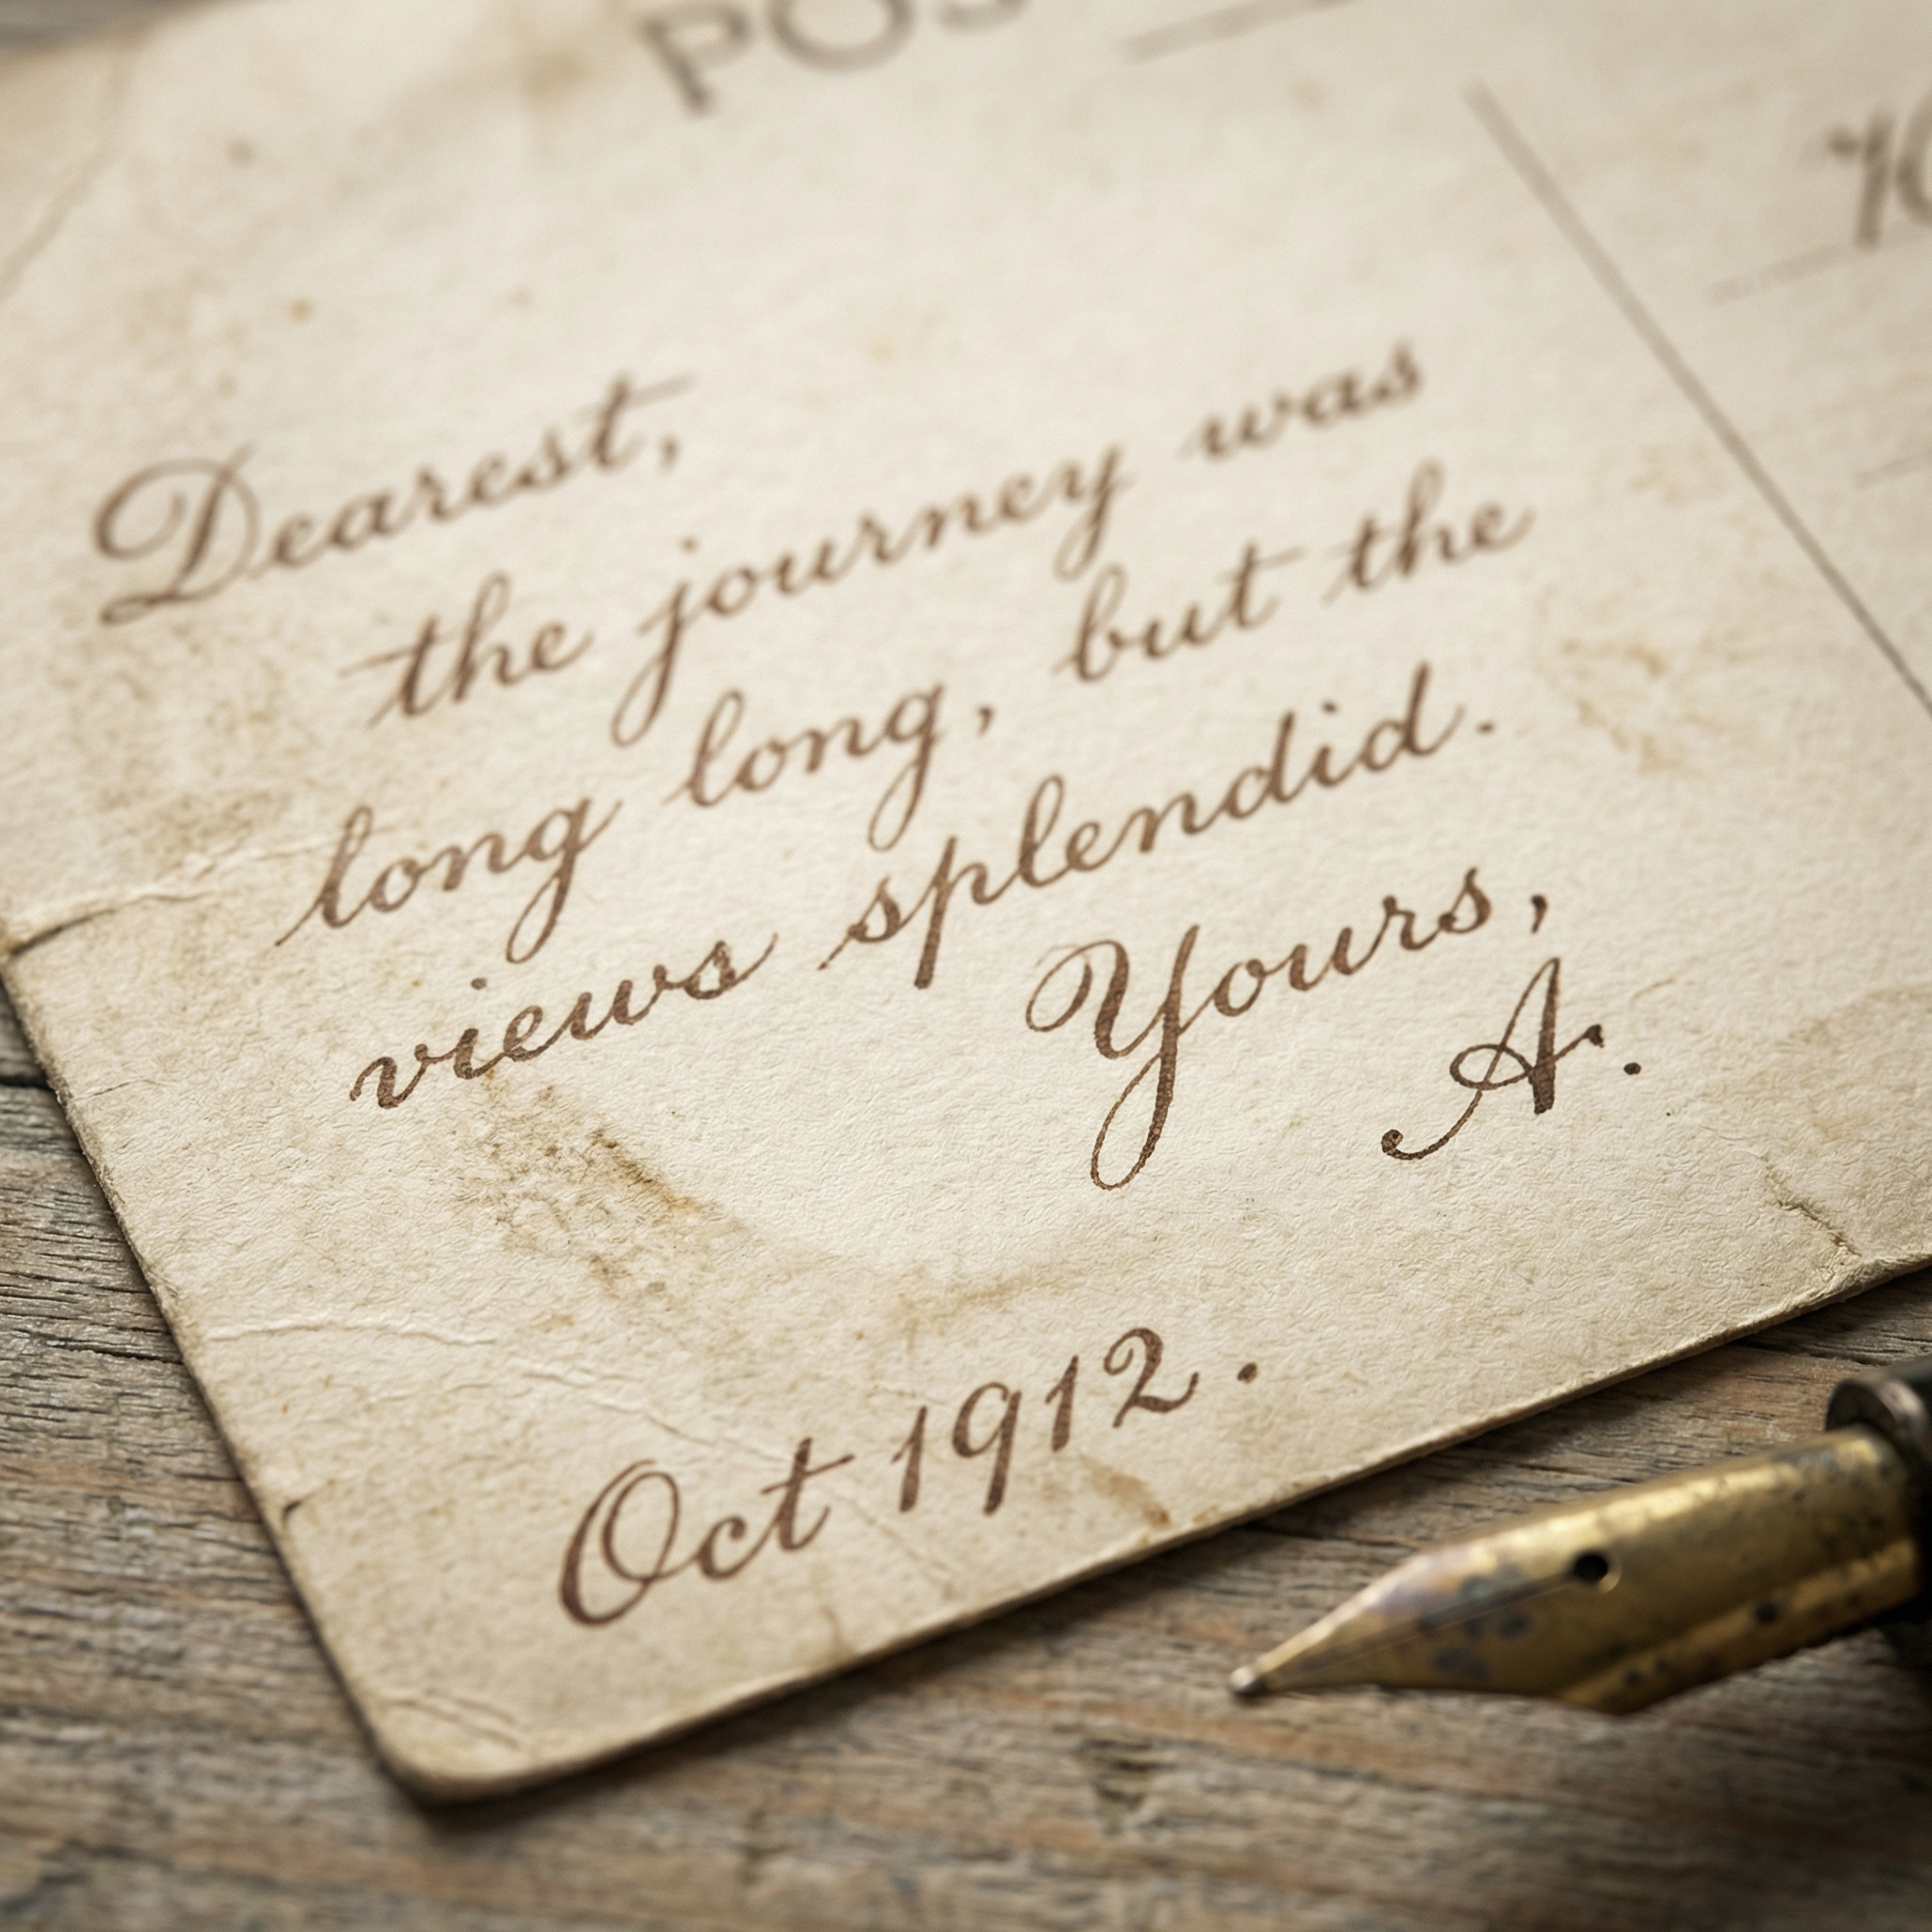 Dearest,
the journey was
long long, but the
views splendid.
Yours,
A.
Oct 1912.